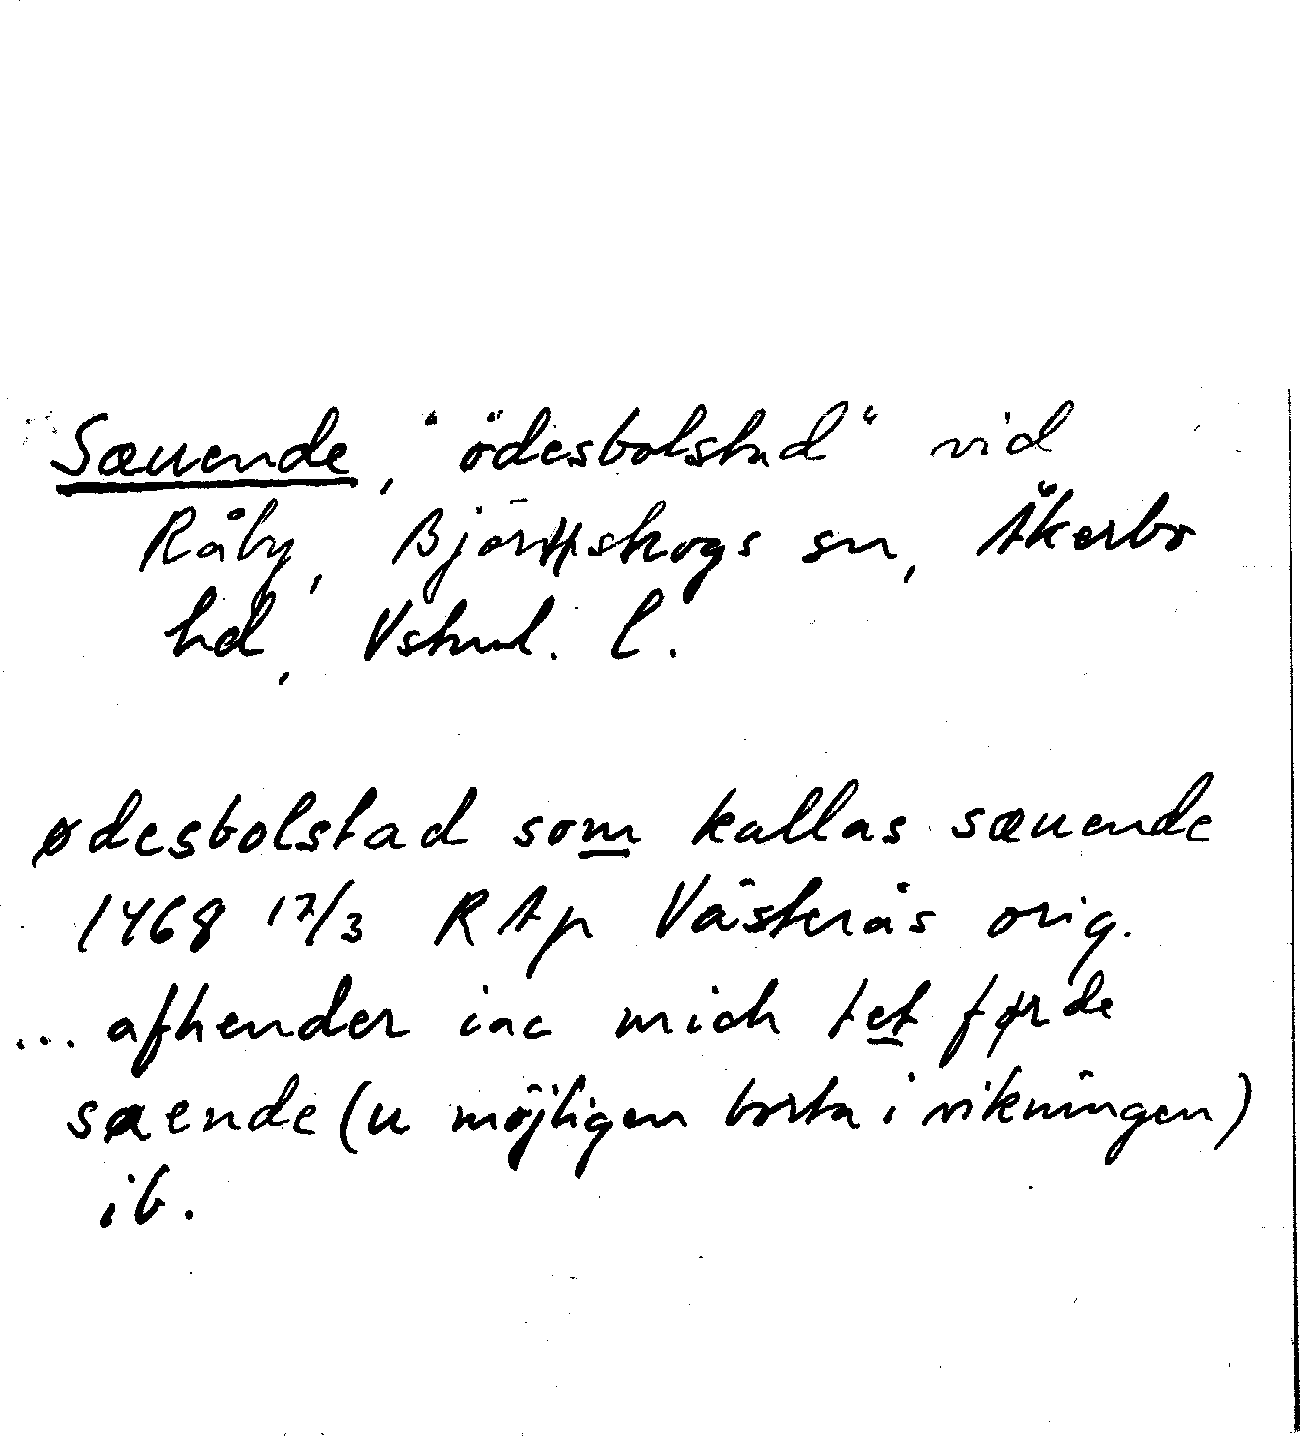 Sæuende, "ödesbolstad" vid
Råby, Björskogs sn, Åkerbo
hd, Vstml. l.
ødesbolstad som kallas sæuende
1468 17/3 RAp Västerås orig.
... afhender iac mich tet førde
sæende (u möjligen borta i vikningen)
ib.